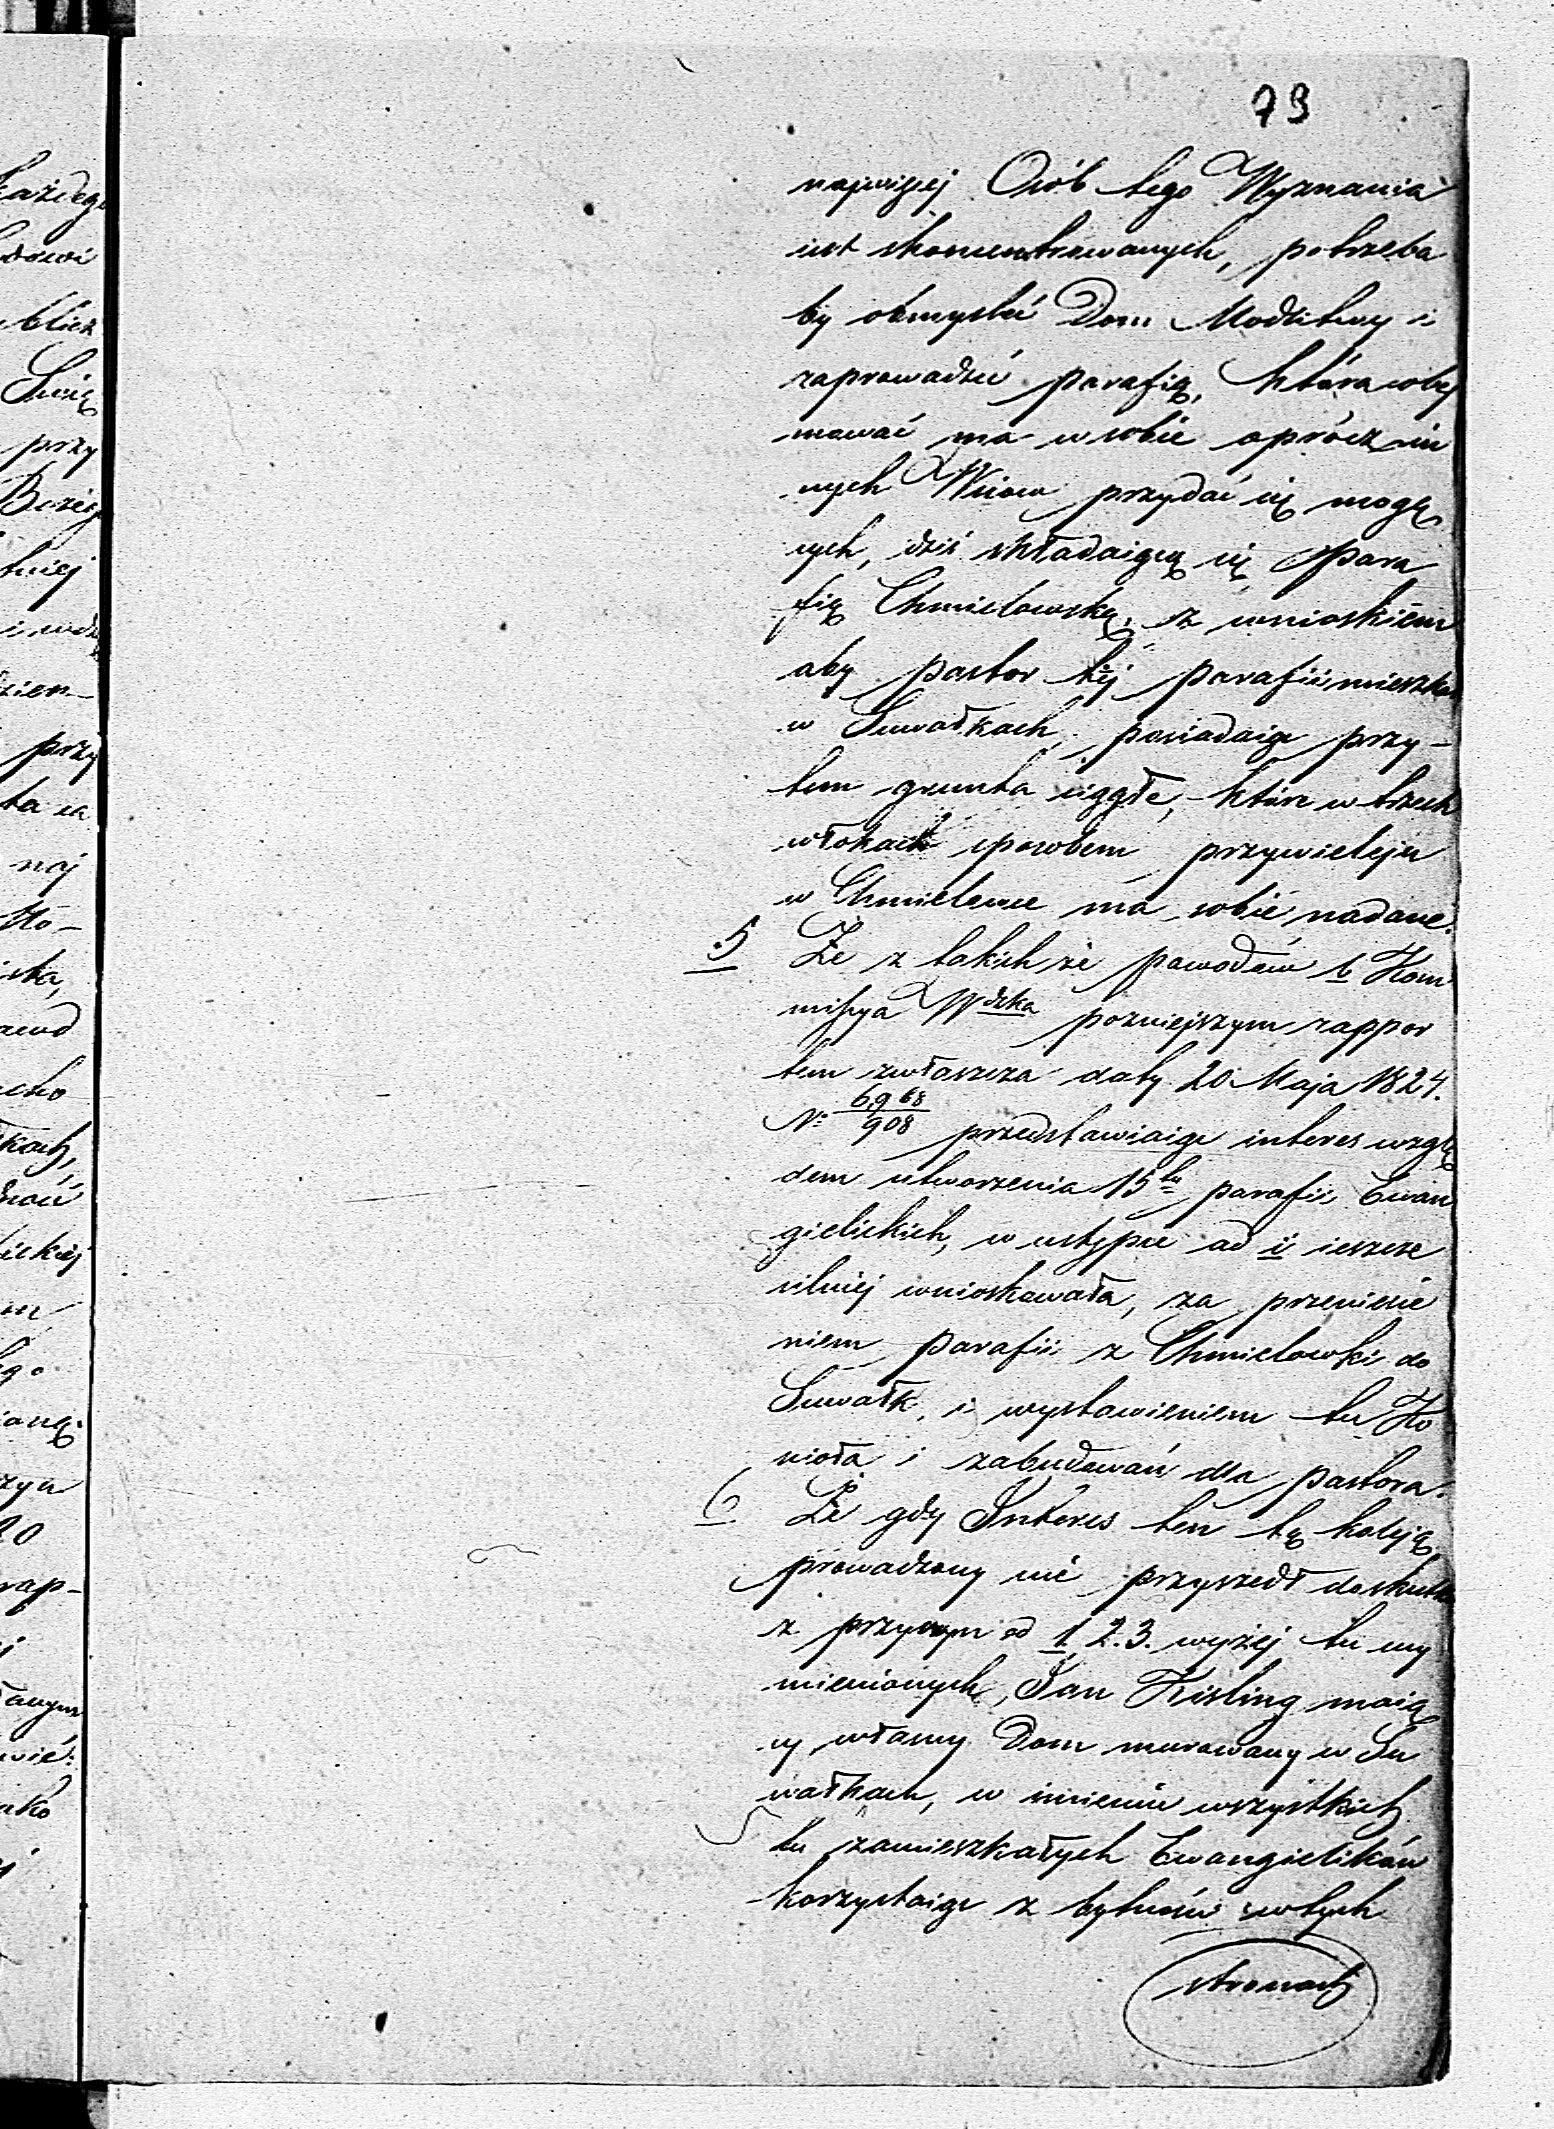 73
najwięcej Osób tego Wyznania
iest skoncentrowanych, potrzeba
by obmyśleć Dom Modlitwy i
zaprowadzić parafią, która obej
mować ma w sobie oprócz in
nych Wiosek przydać się mogą
cych, dziś składaiącą się Para
fią Chmielowską, z wnioskiem
aby pastor téj parafii mieszkał
w Suwałkach, posiadaiąc przy-
tem grunta ciągłe, które w trzech
włokach sposobem przywileju
w Chmielewce ma sobie nadane.
5 Że z takich że powodów b Kom
missya Wdzka poznieyszym rappor
tem zwłaszcza daty 20 Maja 1824.
No 6968/908 przedstawiaiąc interes wzglę
dem utworzenia 15tu parafii Ewan
gielickich, w ustępie ad ii ieszcze
silniej wnioskowała, za przeniesie
niem parafii z Chmielowki do
Suwałk, i wystawieniem tu Ko
ścioła i zabudowań dla pastora.
6 Że gdy Interes ten tę koleją
prowadzony nie przyszedł do skutku
z przyczyn od 1. 2. 3. wyżej tu wy
mienionych, Jan Kisling maią
cy własny Dom murowany w Su
wałkach, w imieniu wszystkich
tu zamieszkałych Ewangielików
korzystaiąc z bytności w tych
stronach
każdego
blisz
Swię
przy
Bożej
przy
naj